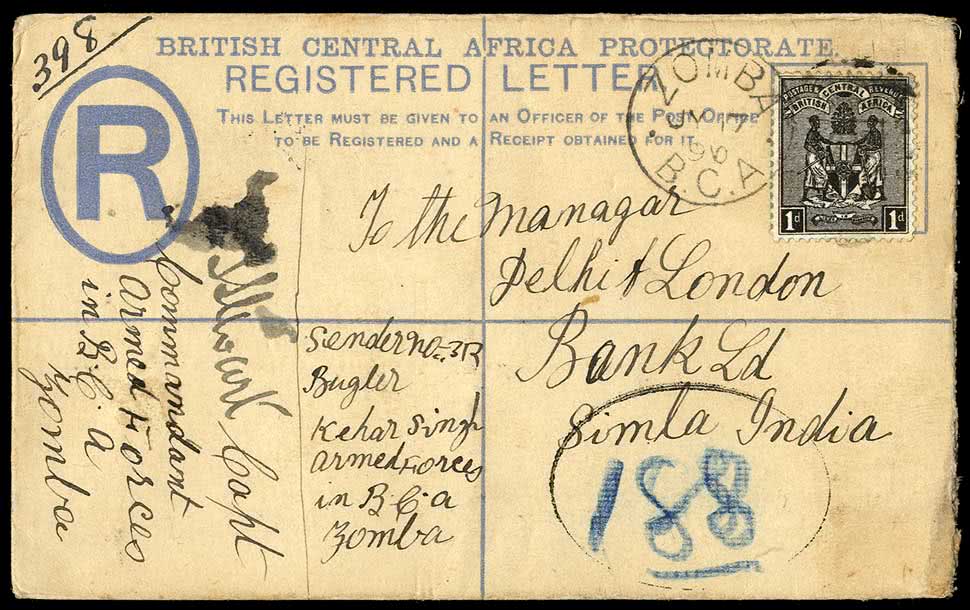 398
BRITISH CENTRAL AFRICA PROTECTORATE.
REGISTERED LETTER.
THIS LETTER MUST BE GIVEN TO AN OFFICER OF THE POST OFFICE
TO BE REGISTERED AND A RECEIPT OBTAINED FOR IT.
R
ZOMBA
JY 17
96
B.C.A
POSTAGE & REVENUE
BRITISH CENTRAL AFRICA
1d 1d
To the Managar
Delhi & London
Bank Ld
Simla India
188
Sender no-312
Bugler
Kehar Singh
Armed Forces
in B.C.a
Zomba
Capt
Commandant
Armed Forces
in B.C.a
Zomba